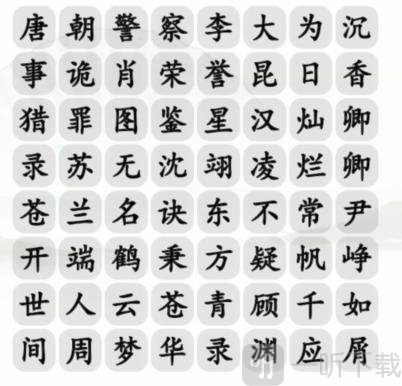 唐朝警察李大为沉
事诡肖荣誉昆日香
猎罪图鉴星汉灿卿
录苏无沈翊凌烂卿
苍兰名诀东不常尹
开端鹤秉方疑帆峥
世人云苍青顾千如
间周梦华录渊应屑
一听下载